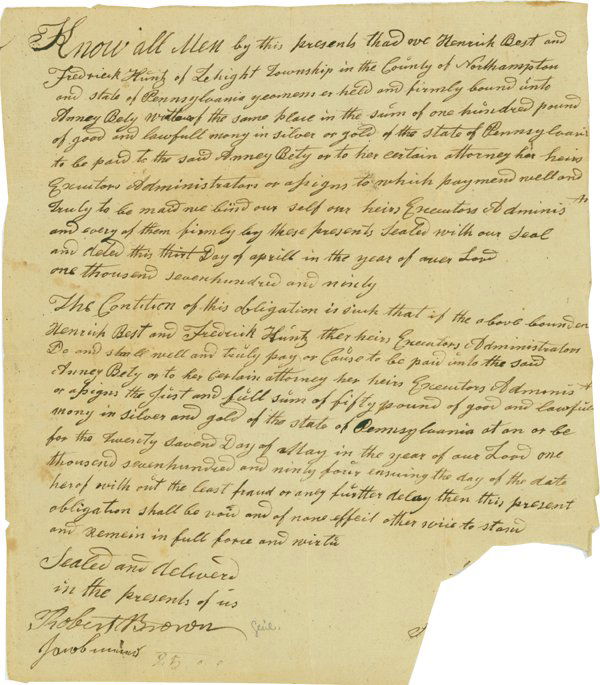 Know all Men by this presents thad we Henrich Best and
Fredrick Huntz of Lehight Township in the County of Northampton
and state of Pennsylvania yeomens er held and firmly bound unto
Anney Bety of the same place in the sum of one hundred pound
of good and lawfull mony in silver or gold of the state of Pennsylvani
to be paid to the said Anney Bety or to her certain attorney her heirs
Executors Administrators or assigns to which paymend well and
truly to be maid we bind our self our heirs Executors Adminis
and every of them firmly by these presents Sealed with our Seal
and dated this Day of aprill in the year of over Lord
one thousand sevenhundred and ninly
The Contition of this obligation is such that if the above bounden
Henrich Best and Fredrick Huntz ther heirs Executors Administrators
Do and shall well and truly pay or Cause to be paid unto the said
Anney Bety or to her Certain attorney her heirs Executors Adminis
or assigns the just and full sum of fifty pound of good and lawfull
mony in silver and gold of the state of Pennsylvania at an or be
for the twesty savend Day of May in the year of our Lord one
thousand sevenhundred and ninly four ensuing the day of the date
herof with out the least fraud or any furtter delay then this present
obligation shall be void and of none effeit other wise to stand
and remein in full force and wirtu
Sealed and deliverd
in the presents of us
Robert Brown